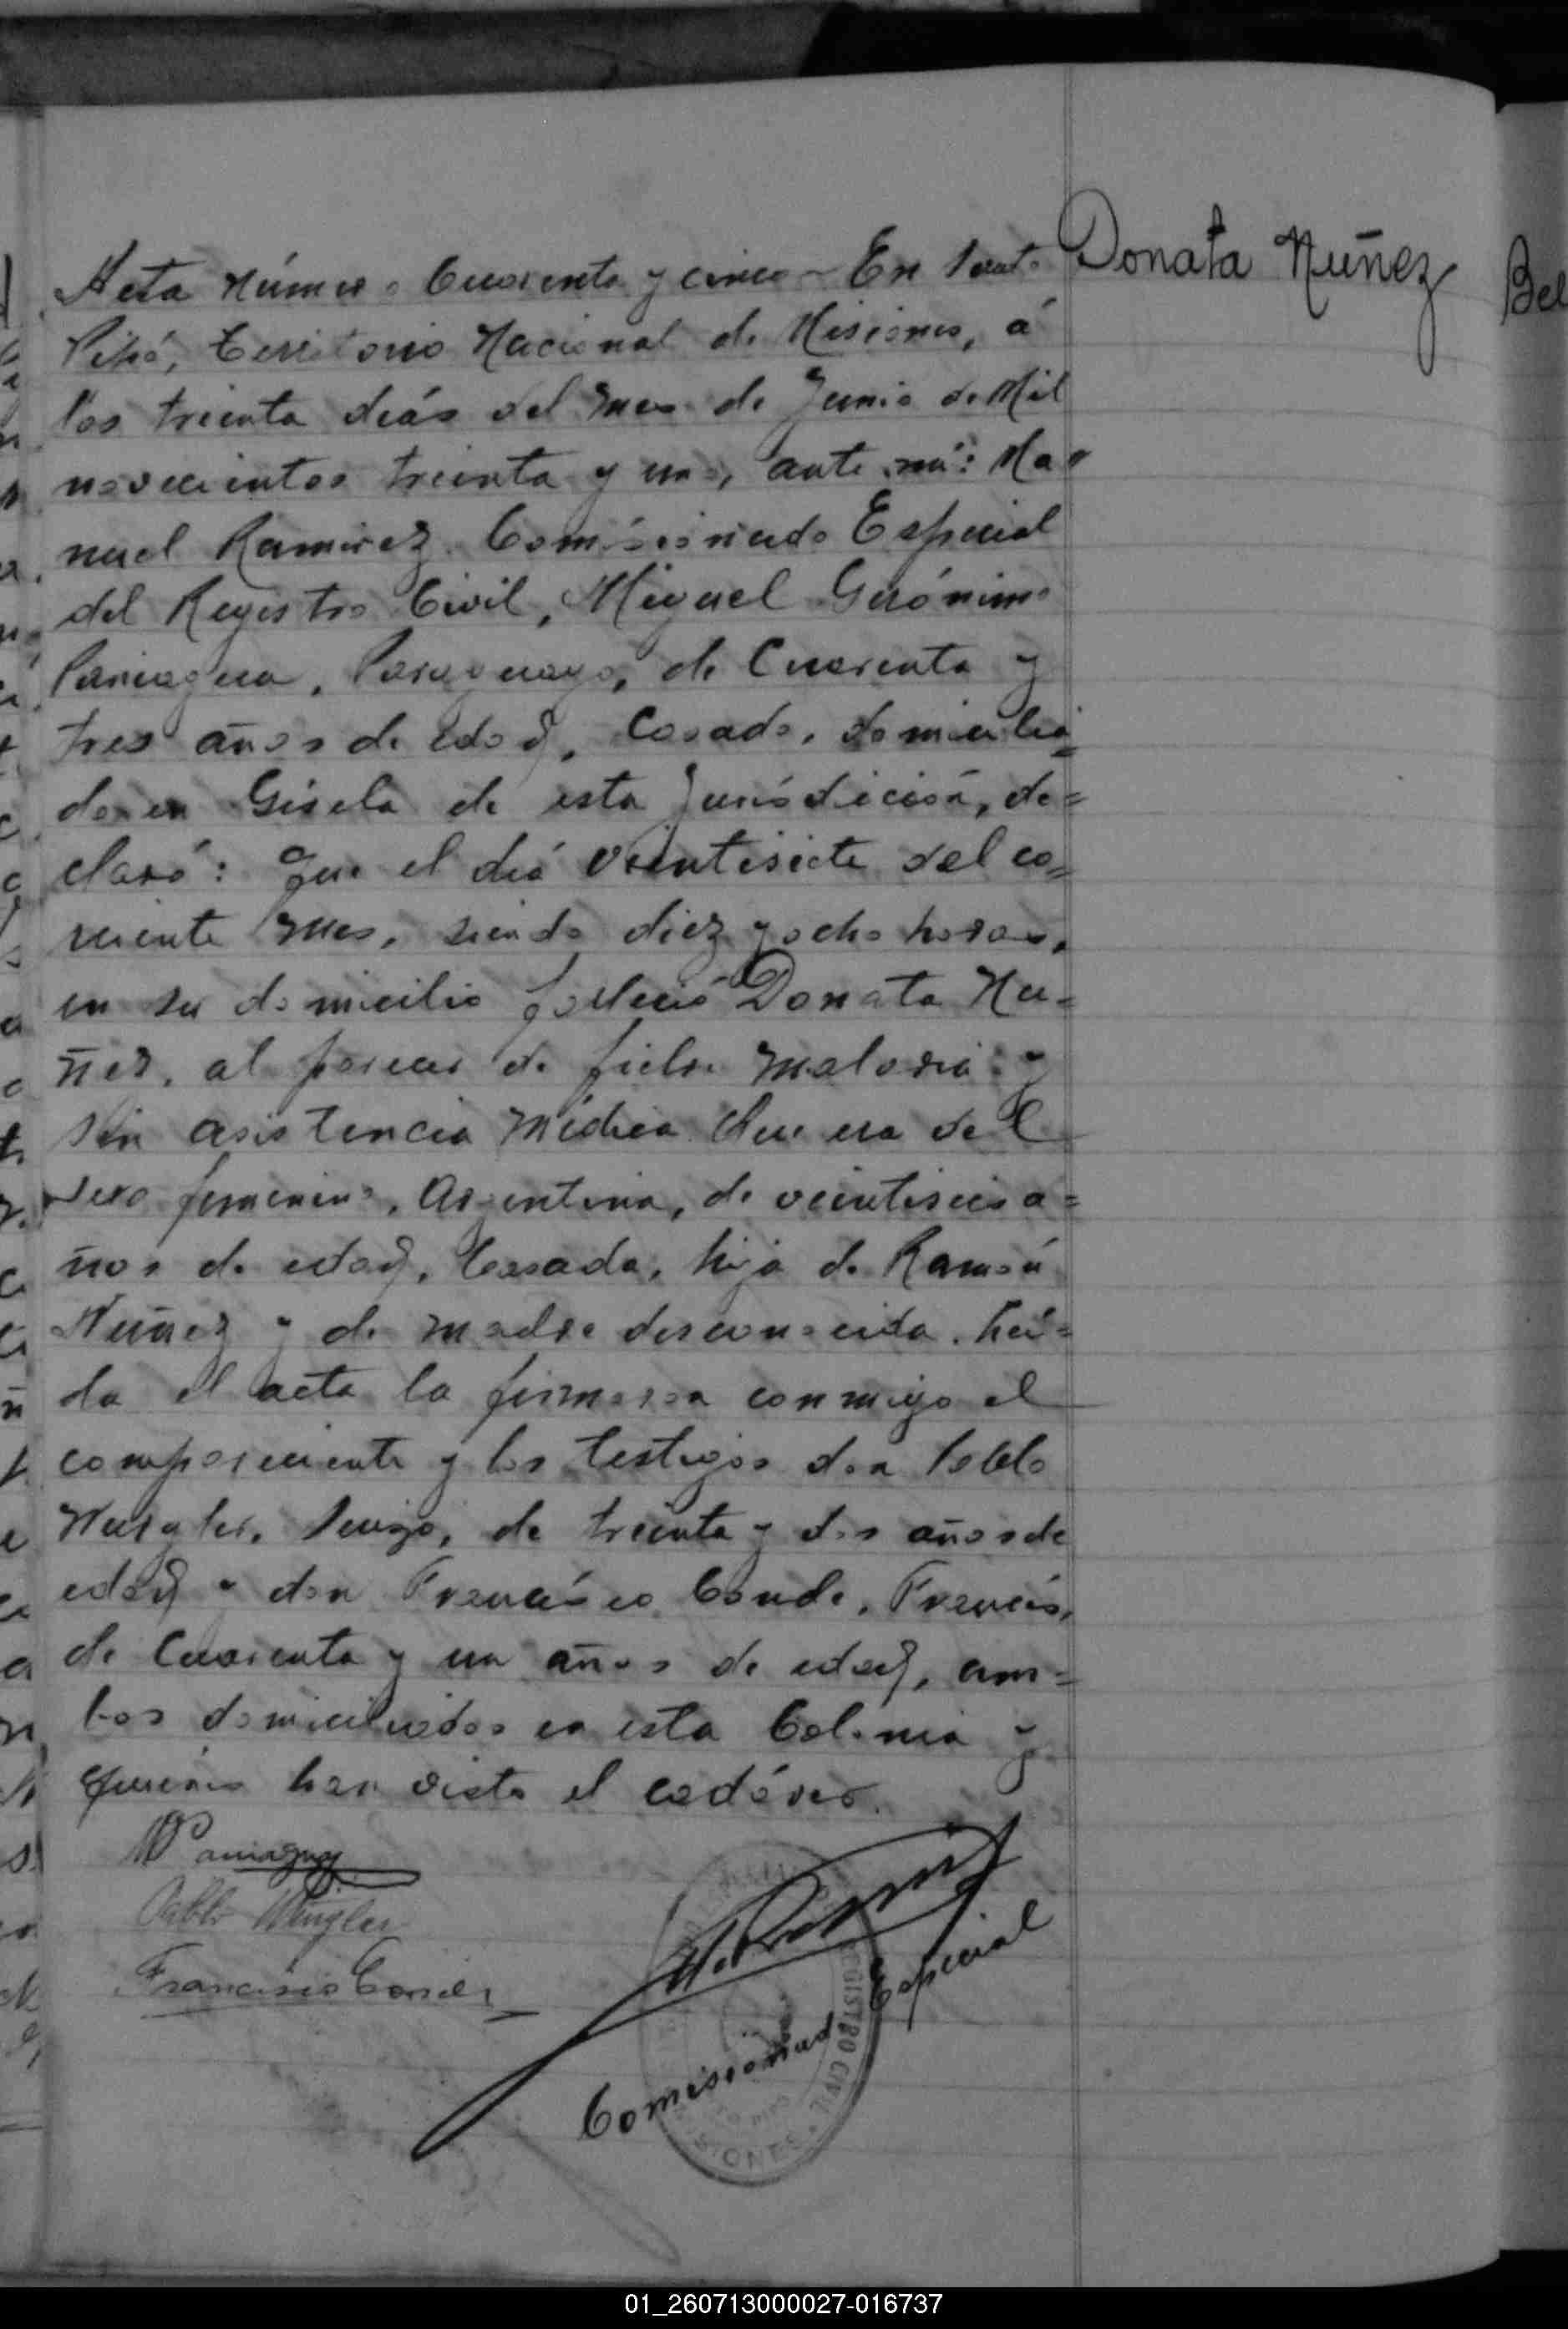 Donata Nuñez
Acta número Cuarenta y cinco - En Puerto
Pipó, Territorio Nacional de Misiones, á
los treinta diás del mes de Junio de Mil
novecientos treinta y uno, ante mí: Ma=
nuel Ramirez Comisionado Especial
del Registro Civil, Miguel Gerónimo
Paniagua, Paraguayo, de Cuarenta y
tres años de edad, Casado, domicilia=
do en Gisela de esta Jurisdicción, de=
claró: Que el diá veintisiete del co=
rriente mes, siendo diez y ocho horas,
en su domicilio falleció Donata Nu=
ñez, al parecer de fiebre malaria y
sin asistencia médica Que era del
sexo femenino, Argentina, de veintiseis a=
ños de edad, Casada, hija de Ramón
Nuñez y de madre desconocida. Leí=
da el acta la firmaron conmigo el
compareciente y los testigos don Pablo
Suizo, de treinta y dos años de
edad y don Francisco Conde, Francés,
de Cuarenta y un años de edad, am=
bos domiciliados en esta Colonia y
quienes han visto el cadáver.
MPaniagua
Pablo
Francisco Conde
Comisionado Especial
REGISTRO CIVIL
MISIONES
Bel
01_260713000027-016737